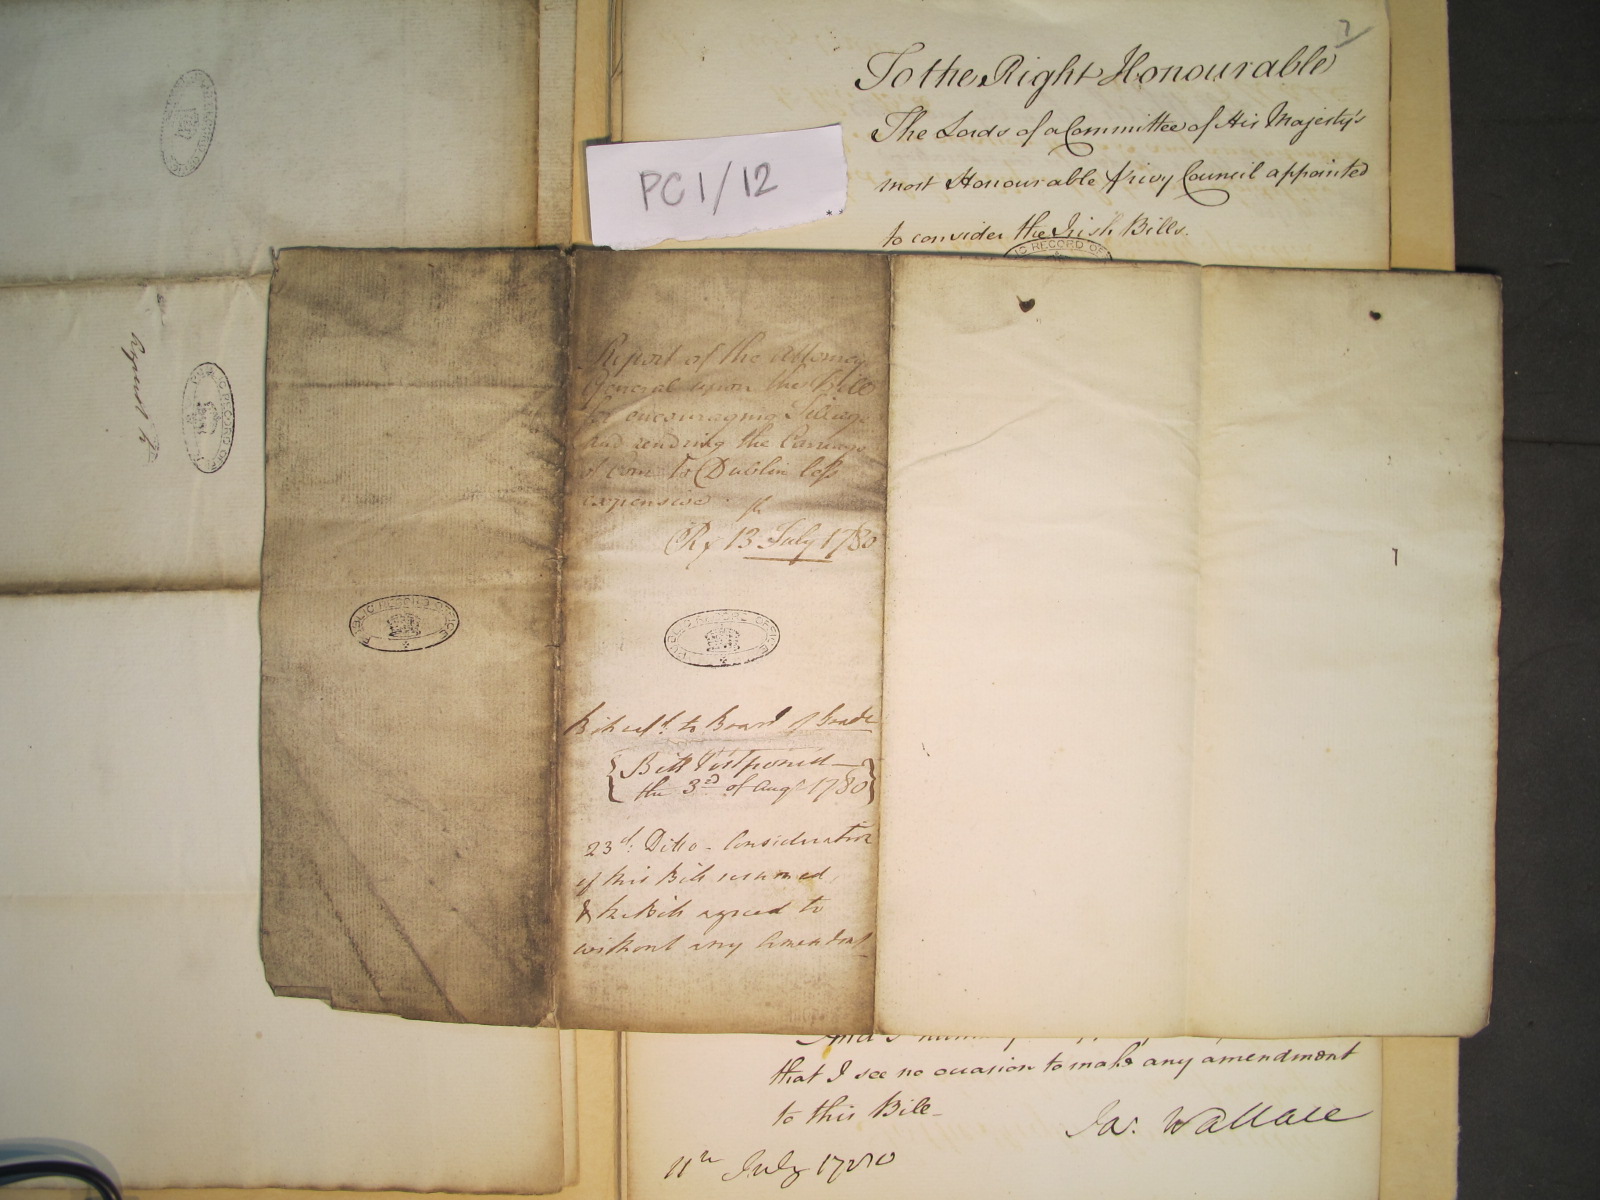 7
To the Right Honourable
The Lords of a Committee of His Majesty's
most Honourable Privy Council appointed
to consider the Irish Bills.
PC 1/12
PUBLIC RECORD OFFICE
Report of the Attorney
General upon this Bill
for encouraging Tillage
and rendring the Carriage
of corn to Dublin less
expensive.
Rx 13 July 1780
PUBLIC RECORD OFFICE
PUBLIC RECORD OFFICE
Bill refd. to Board of Trade
Bill Postponed
the 3rd of Augt 1780
23d. Ditto - Consideration
of this Bill resumed,
& the Bill agreed to
without any Amendmt
that I see no occasion to make any amendment
to this Bill
Ja: Wallace
11th July 1780